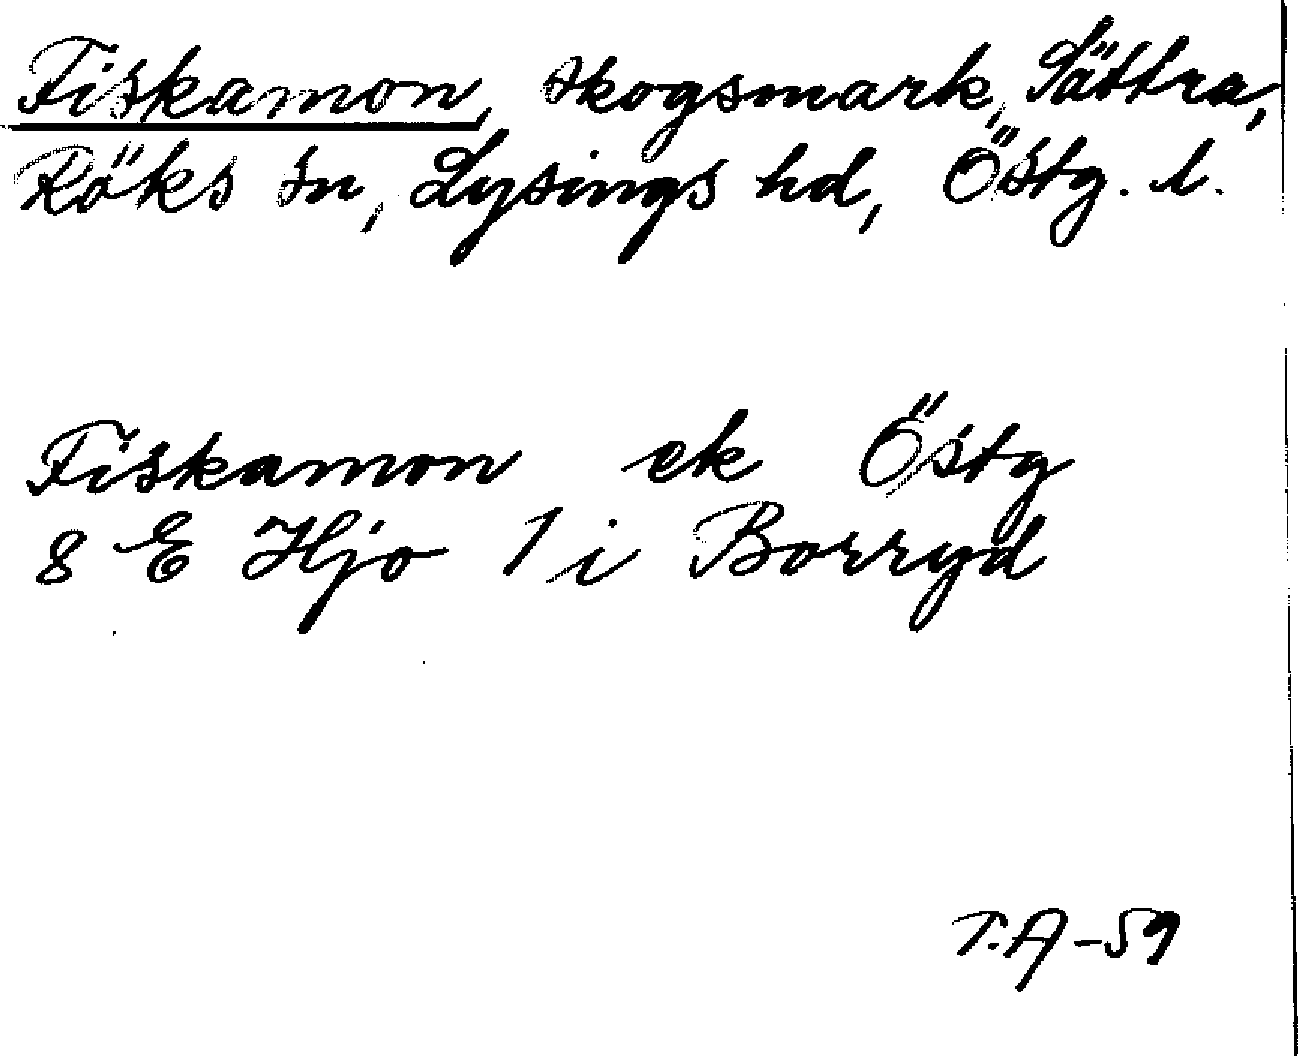 Fiskamon, skogsmark, Sättra,
Röks sn, Lysings hd, Östg. l.
Fiskamon ek Östg
8 E Hjo 1 i Borryd
T.A-59